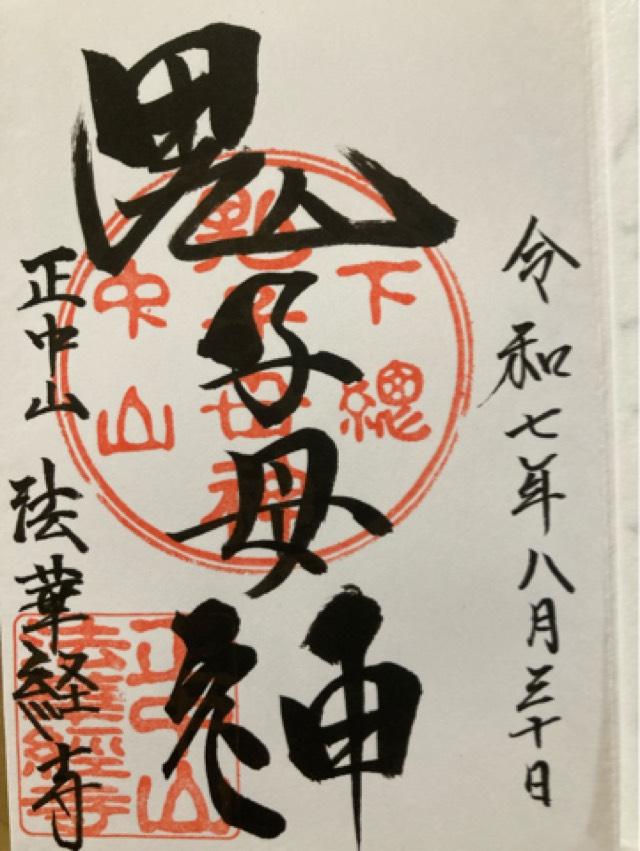 令和七年八月三十日
鬼子母神
正中山 法華経寺
下總
鬼子母神
中山
正中山
法華經寺